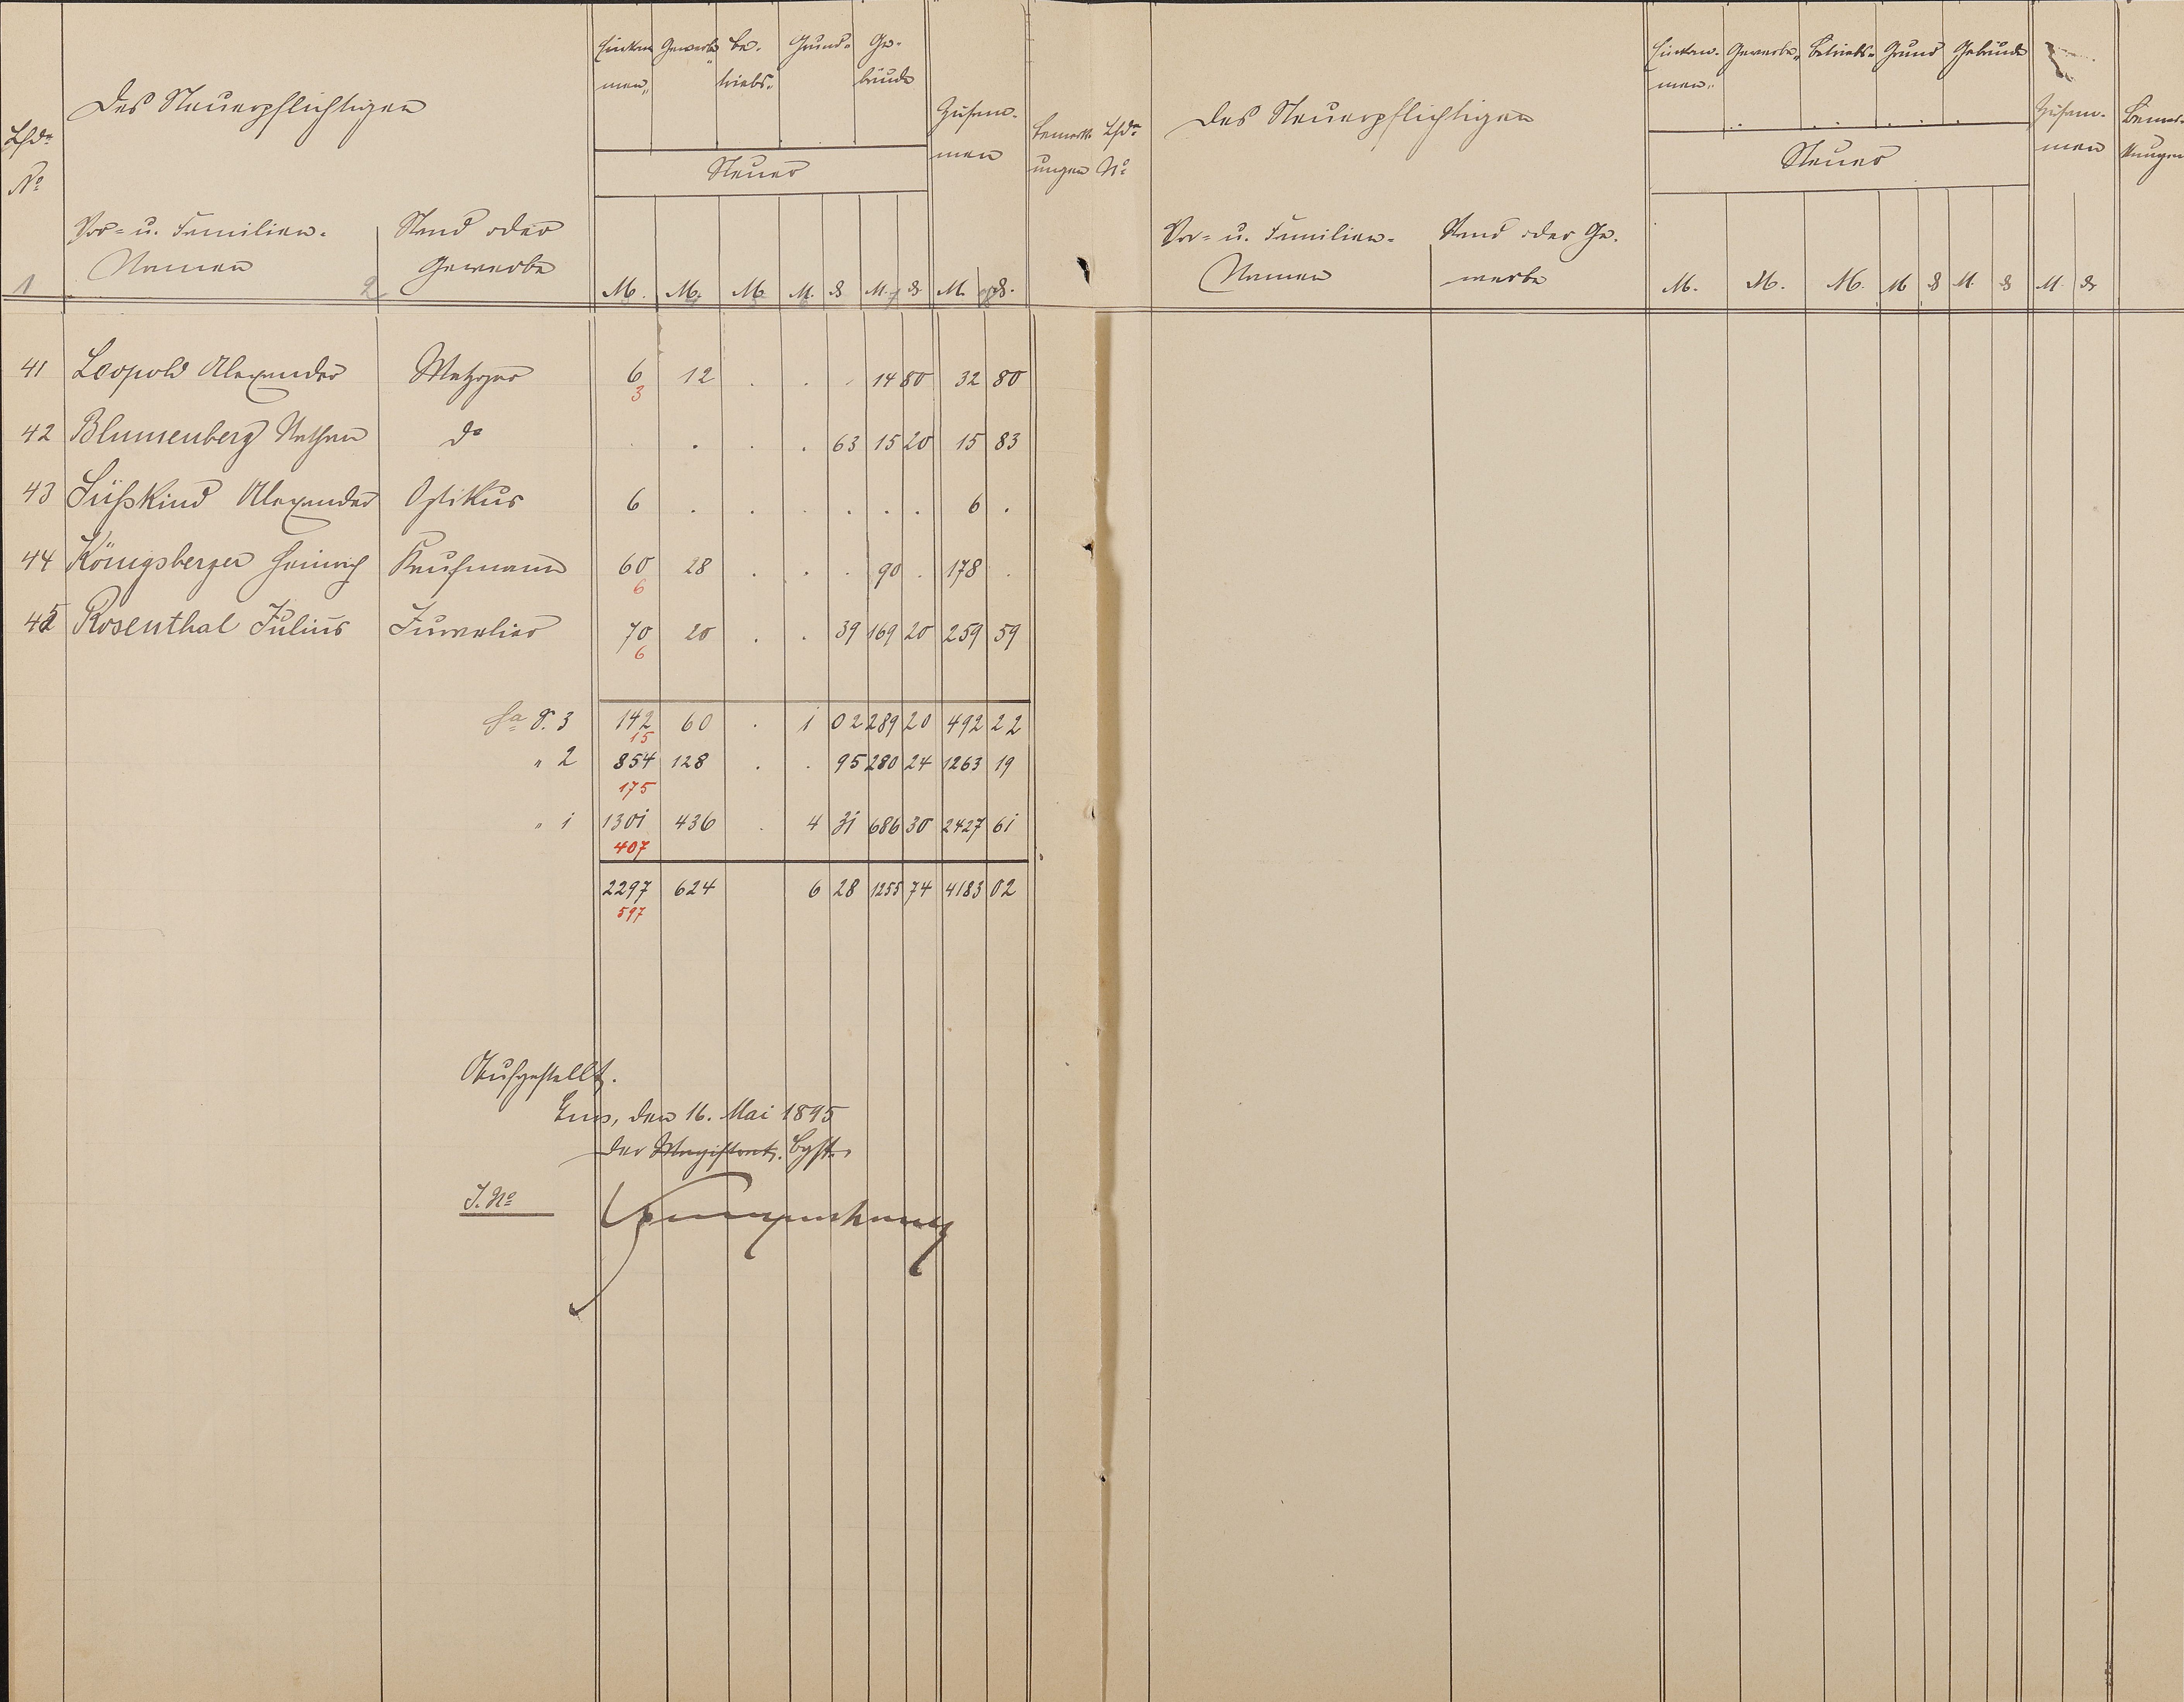 Einkom Gewerbe„ Be- Grund- Ge-
men„ triebs- bäude
Des Steuerpflichtigen
Lfde
No
Steuer
Zusam-
men
Bemerk-
ungen
Vor- u. Familien- Stand oder
Namen Gewerbe
1 2
M. M. M. M. ₰ M. ₰ M. ₰.
41 Leopold Alexander Metzger 6 12 . . . 14 80 32 80
3
42 Blumenberg Nathan do . . . 63 15 20 15 83
43 Süßkind Alexander Optikus 6 . . . . . . 6 .
44 Königsberger Heinrich Kaufmann 60 28 . . . 90 . 178 .
6
45 Rosenthal Julius Juwelier 70 20 . . 39 169 20 259 59
6
Sa S. 3 142 60 . 1 02 289 20 492 22
15
„ 2 854 128 . . 95 280 24 1263 19
175
„ 1 1301 436 . 4 31 686 30 2427 61
407
2297 624 6 28 1255 74 4183 02
597
Aufgestellt.
Ems, den 16. Mai 1895
Der Magistrat. Bgst.
J. No
Lfde
No
Des Steuerpflichtigen
Einkom- Gewerbe„ Betriebs- Grund Gebäude
men„
Steuer
Zusam-
men
Bemer-
kungen
Vor- u. Familien- Stand oder Ge-
Namen werbe
M. M. M. M ₰ M. ₰ M. ₰